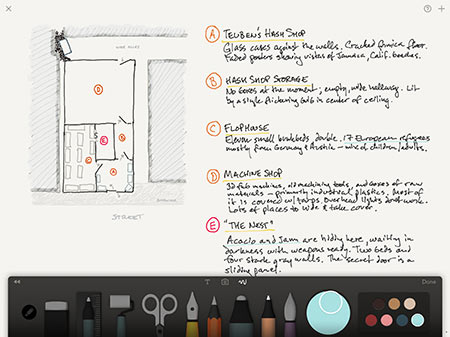 Done
A TEUBEN'S HASH SHOP
Glass cases against the walls. Cracked formica floor.
Faded posters showing vistas of Jamaica, Calif. beaches.
B HASH SHOP STORAGE
No boxes at the moment; empty, wide hallway. Lit
by a single flickering bulb in center of ceiling.
C FLOPHOUSE
Eleven small bunkbeds double. 17 European refugees
mostly from Germany & Austria – mix of children/adults.
D MACHINE SHOP
3D fab machines, old machining tools, and boxes of raw
materials – primarily industrial plastics. Most of
it is covered w/ tarps. Overhead lights don't work.
Lots of places to hide & take cover.
E "THE NEST"
Acacio and Jam are hiding here, waiting in
darkness with weapons ready. Two beds and
four stark gray walls. The secret door is a
sliding panel.
D
E
C
B
S
A
STREET
T